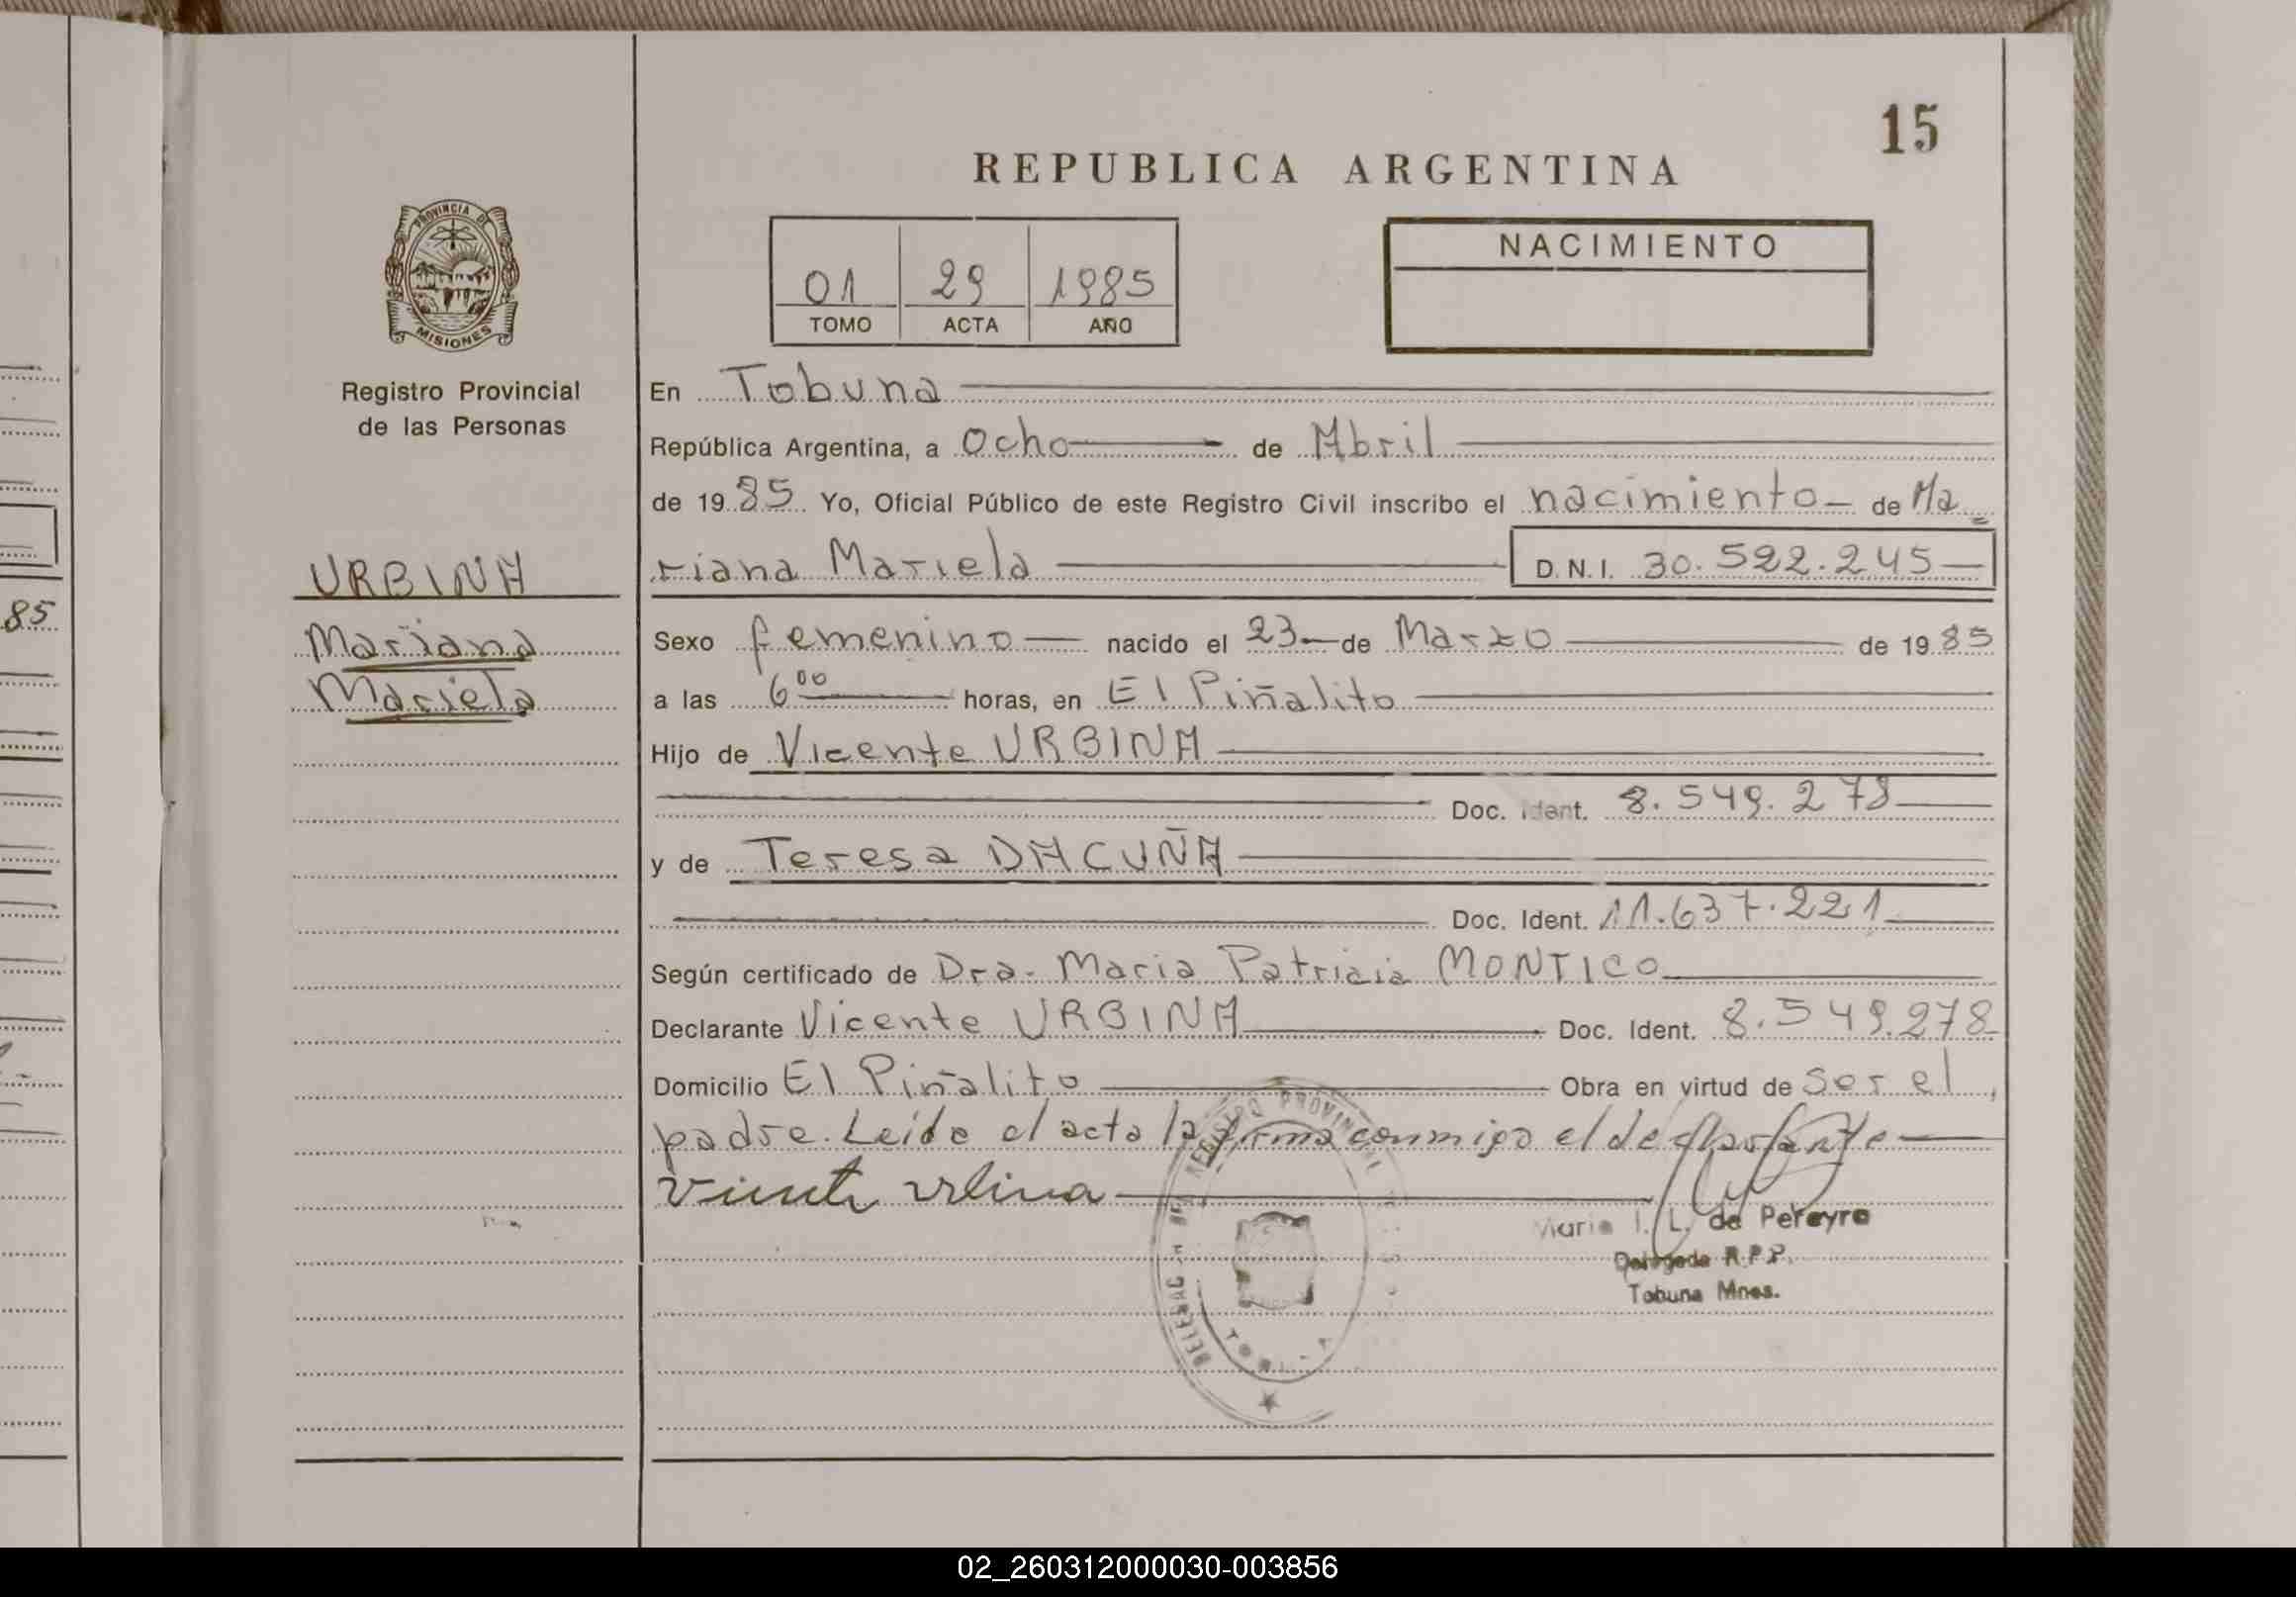 15
REPUBLICA ARGENTINA
PROVINCIA DE
MISIONES
NACIMIENTO
01 29 1985
TOMO ACTA AÑO
Registro Provincial
de las Personas
En Tobuna
República Argentina, a Ocho de Abril
de 1985 Yo, Oficial Público de este Registro Civil inscribo el nacimiento de Ma
URBINA
riana Mariela D.N.I. 30.522.245
85
Mariana
Sexo femenino nacido el 23 de Marzo de 1985
Mariela
a las 6 00 horas, en El Piñalito
Hijo de Vicente URBINA
Doc. Ident. 8.549.278
y de Teresa DACUÑA
Doc. Ident. 11.637.221
Según certificado de Dra. Maria Patricia MONTICO
Declarante Vicente URBINA Doc. Ident. 8.549.278
Domicilio El Piñalito Obra en virtud de ser el
padre. Leída el acta la firma conmigo el declarante
Vicente Urbina
Maria I. L. de Pereyra
Delegada R.P.P.
Tobuna Mnes.
REGISTRO PROVINCIAL
02_260312000030-003856